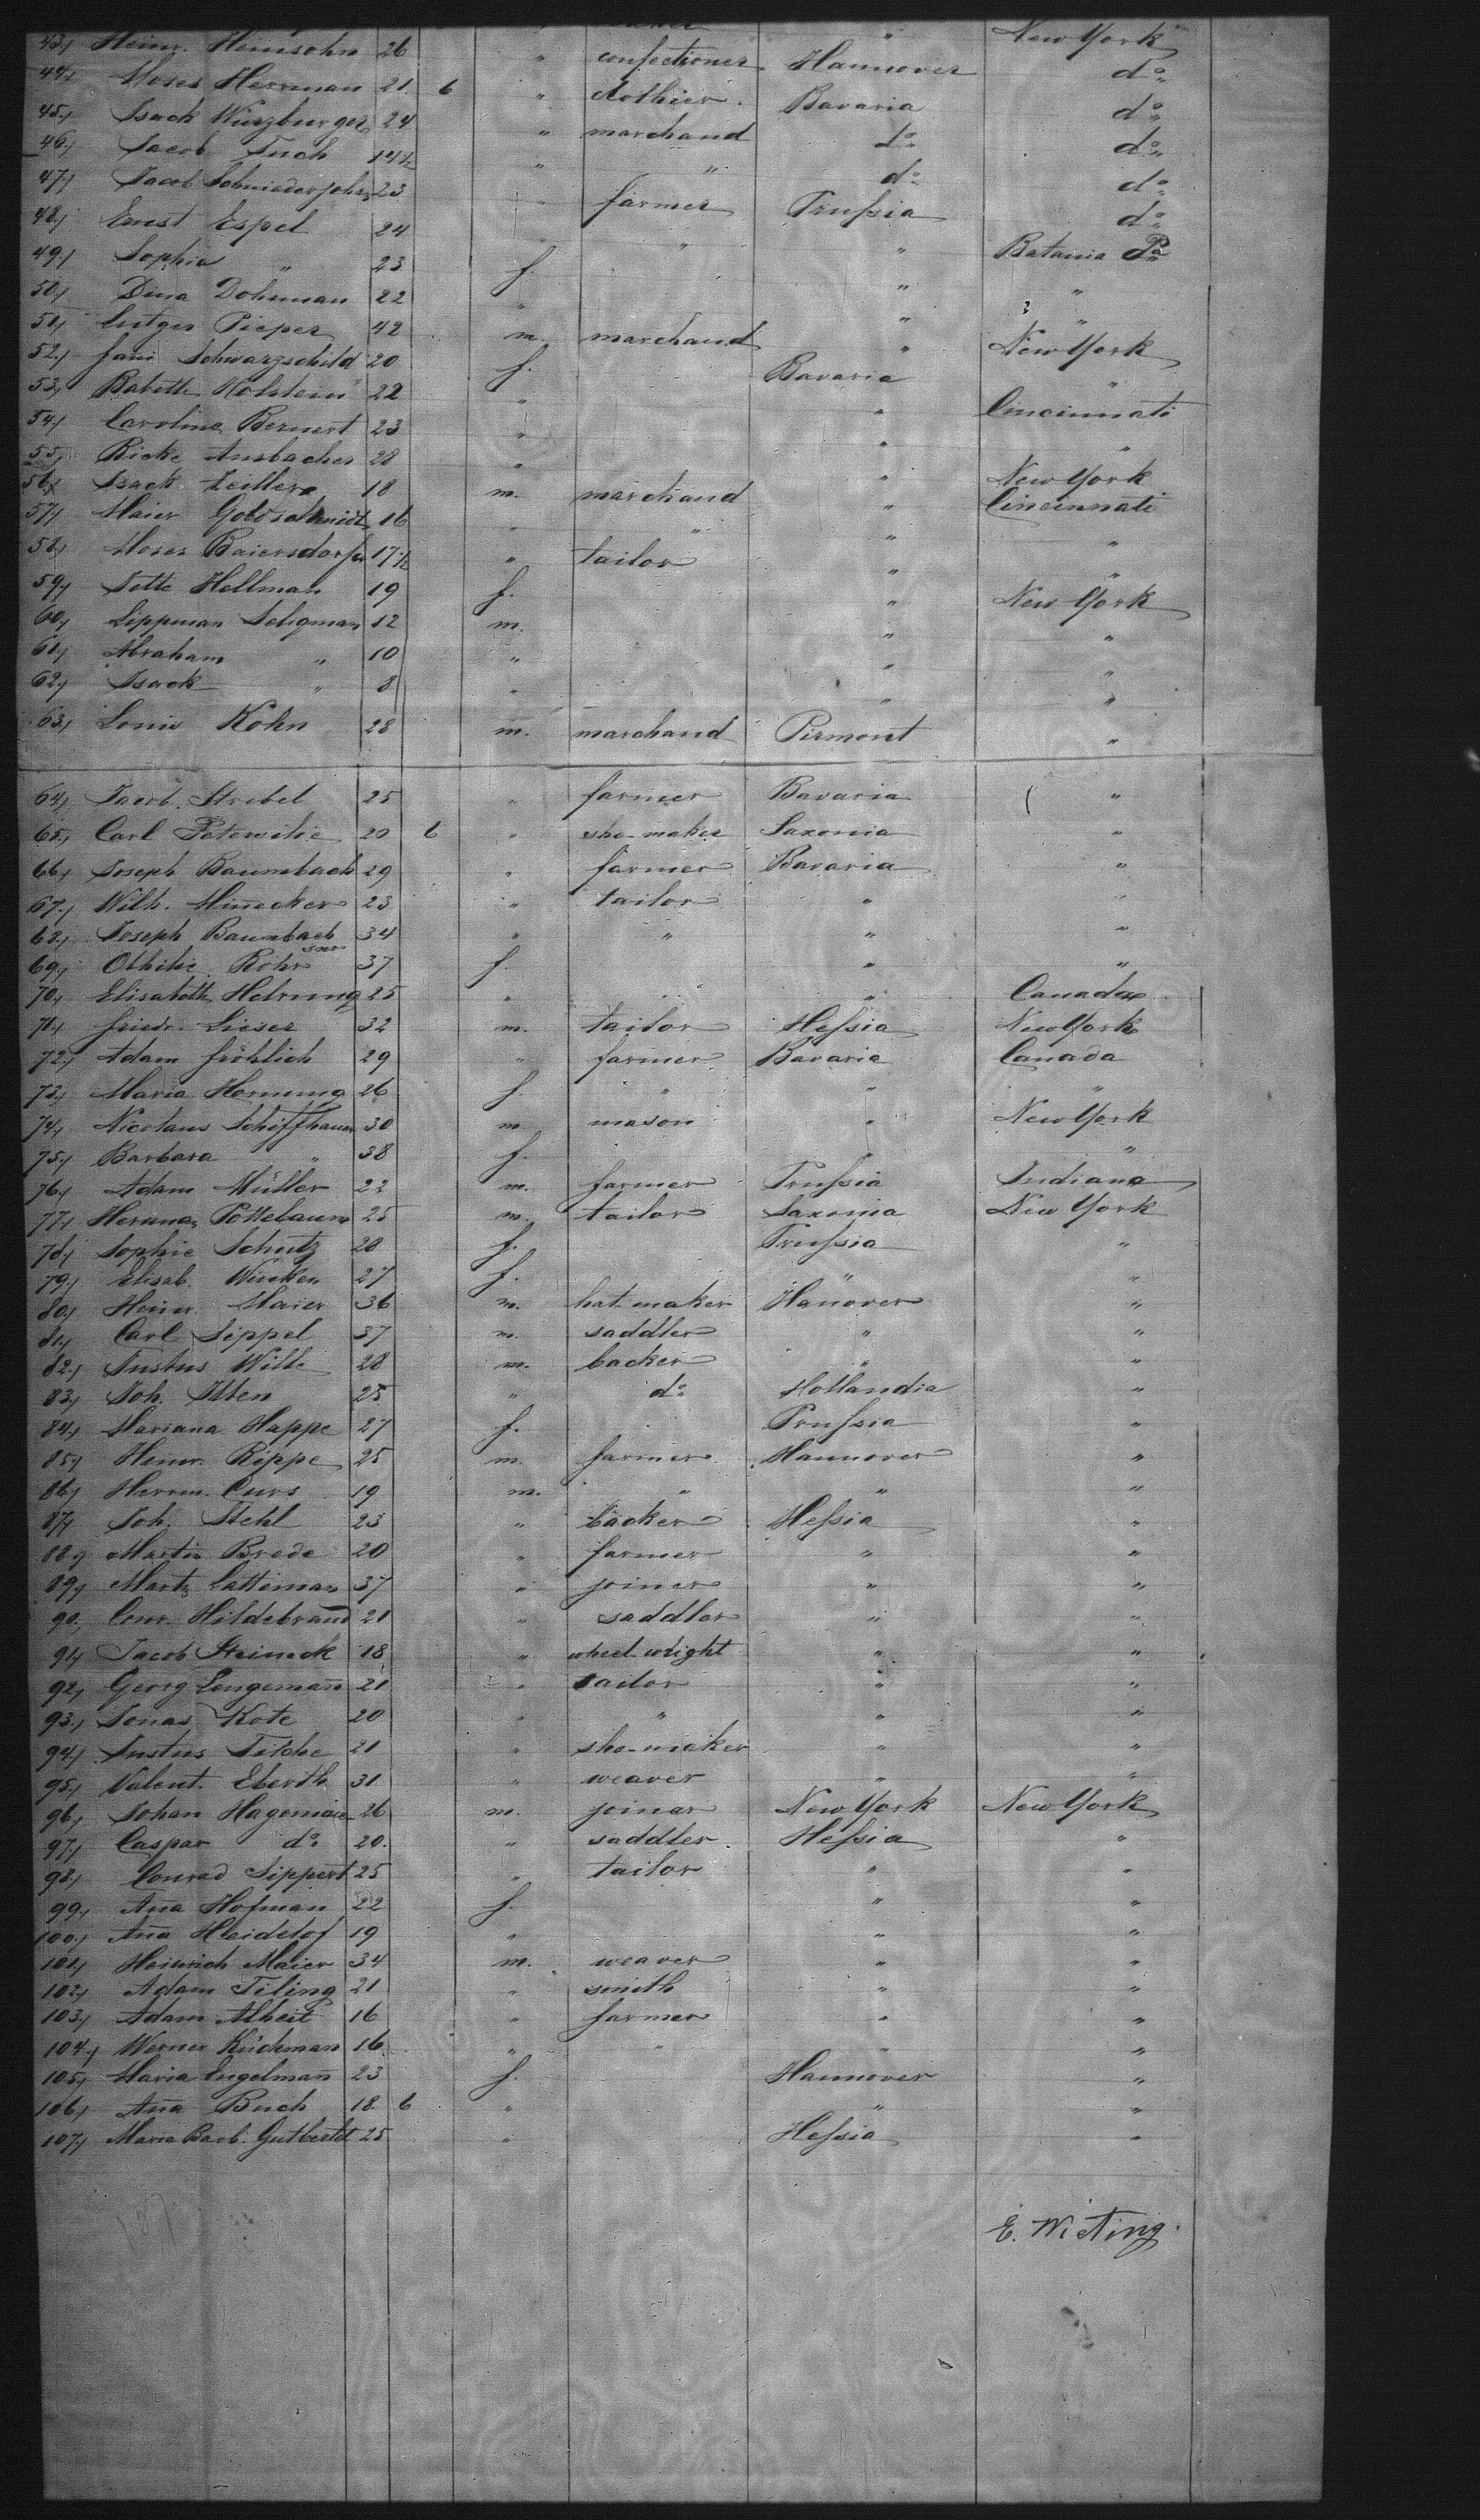 43) Heinr. Heinsohn 26 " confectioner Hannover New York
44) Moses Herrman 21. 6 " clothier. Bavaria do
45) Isack Wurzburger 24 " marchand do do
46) Jacob Tuch 14½ " " do do
47) Jacob Schniederjohn 23 " farmer Prussia do
48) Ernst Espel 24 " " " do
49) Sophia " 23 f. " Batavia Pa
50) Dina Dohrman 22 " " "
51) Rutger Pieper 42 m. marchand " New York
52) Fani Schwarzschild 20 f. Bavaria "
53) Babette Holstein 22 " " Cincinnati
54) Caroline Bernert 23 " " "
55) Ricke Ansbacher 28 " " New York
56) Isack Zeiller 18 m. marchand " Cincinnati
57) Maier Goldschmidt 16 " " " "
58) Moses Baiersdorfer 17½ " tailor " "
59) Jette Hellman 19 f. " New York
60) Lippman Seligman 12 m. " "
61) Abraham " 10 " " "
62) Isack " 8 " " "
63) Louis Kohn 28 m. marchand Pirmont "
64) Jacob. Strebel 25 " farmer Bavaria "
65) Carl 20 6 " sho-maker Saxonia "
66) Joseph Baumbach 29 " farmer Bavaria "
67) Wilh. 23 " tailor " "
68) Joseph Baumbach snr 34 " " " "
69) Othilie Röhr 37 f. " "
70) Elisabeth Helrung 25 " " " Canada
71) Friedr. Lieser 32 m. tailor Hessia New York
72) Adam Fröhlich 29 " farmer Bavaria Canada
73) Maria Hornung 26 f. " " "
74) Nicolaus Schiffhauer 30 m. mason " New York
75) Barbara " 38 f. " "
76) Adam Müller 22 m. farmer Prussia Indiana
77) Herman Pottebaum 25 m. tailor Saxonia New York
78) Sophie Schutz 28 f. Prussia "
79) Elisab. Wincken 27 f. " "
80) Heinr. Maier 36 m. hat-maker Hanover "
81) Carl Sippel 37 m. saddler " "
82) Justus Wille 28 m. backer " "
83) Joh. Itten 25 " do Hollandia "
84) Mariana Happe 27 f. Prussia "
85) Heinr. Rippe 25 m. farmer Hannover "
86) Herrm. Curs 19 m. " " "
87) Joh. Stehl 23 " backer Hessia "
88) Martin Brede 20 " farmer " "
89) Martz Lattemar 37 " joiner " "
90) Conr. Hildebrand 21 " saddler " "
91) Jacob Steineck 18 " wheel-wright " "
92) Georg Lengemañ 21 " tailor " "
93) Jonas Kote 20 " " " "
94) Justus 21 " sho-maker " "
95) Valent. Eberth 31 " weaver " "
96) Johan Hagemañ 26 m. joiner New York New York
97) Caspar do 20. " saddler Hessia "
98) Conrad Sippert 25 " tailor " "
99) Aña Hofman 22 f. " "
100) Aña Heidelof 19 " " "
101) Heinrich Maier 34 m. weaver " "
102) Adam Tiling 21 " smith " "
103) Adam Alheit 16 " farmer " "
104) Werner Küchman 16 " " " "
105) Maria Engelmañ 23 f. Hannover "
106) Aña Buch 18. 6 " " "
107) Maria Barb. Gutberlet 25 " Hessia "
107
E. Wieting.